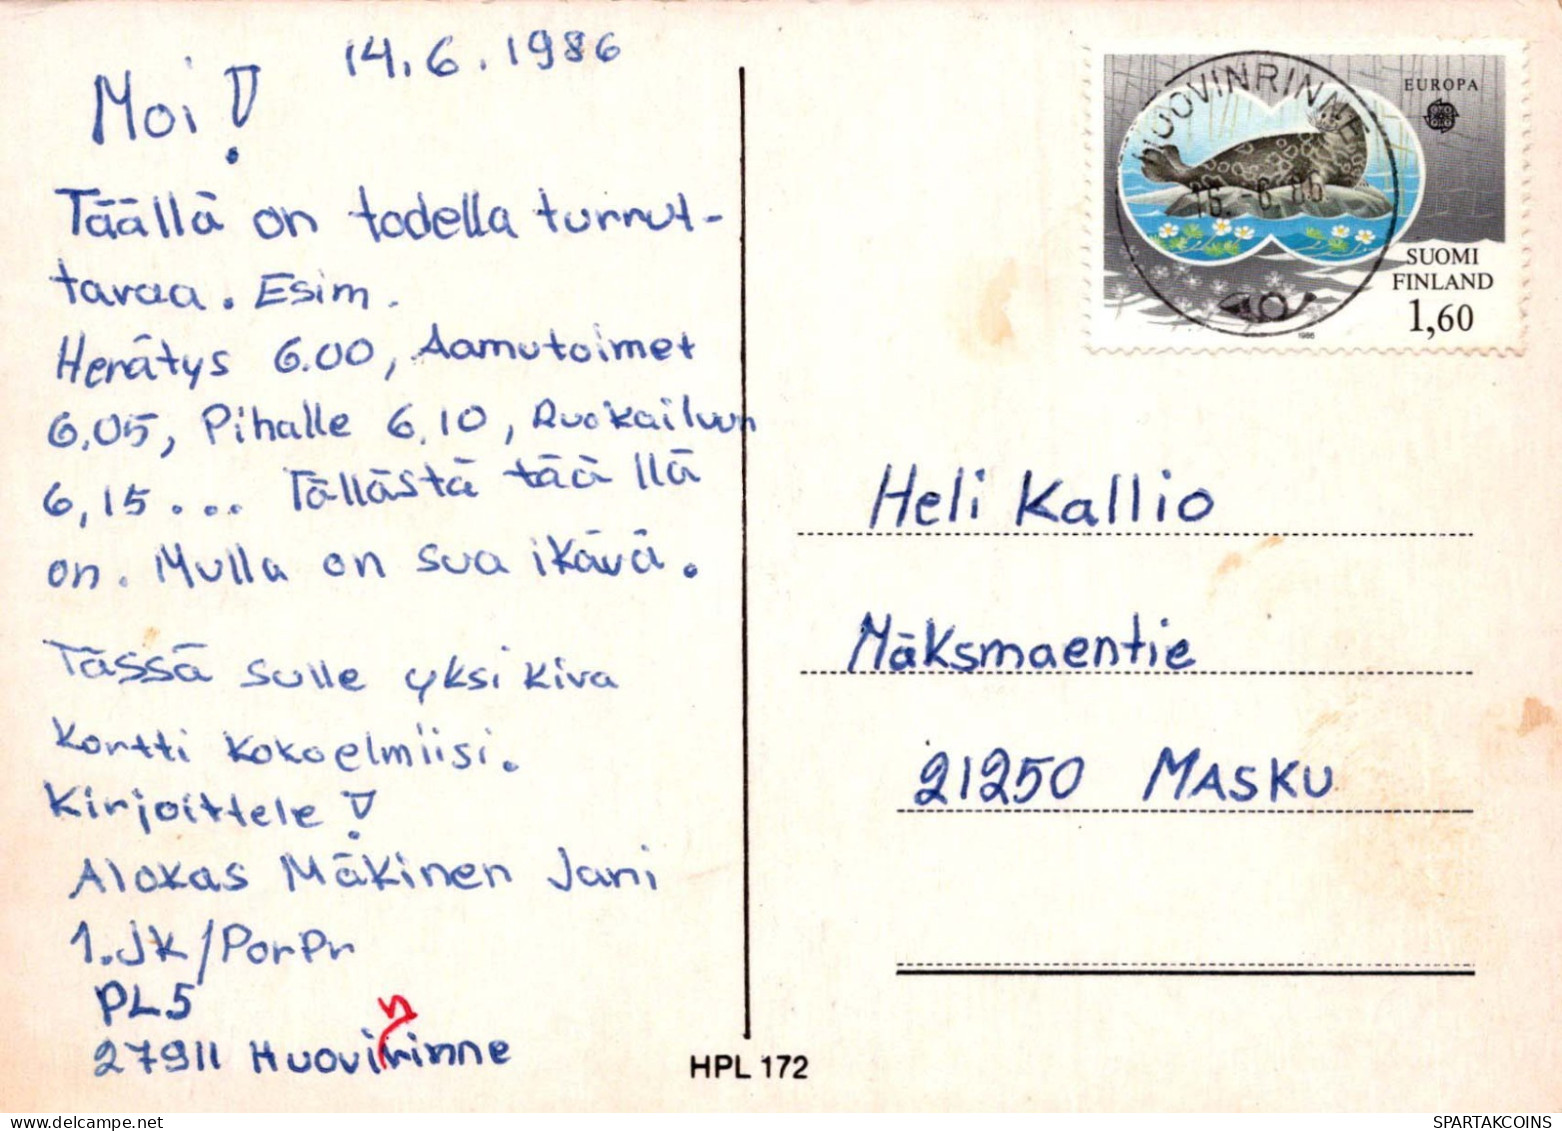 14.6.1986
Moi!
Täällä on todella turrut-
tavaa. Esim.
Herätys 6.00, Aamutoimet
6.05, Pihalle 6.10, Ruokailuun
6,15... Tällästä täällä
on. Mulla on sua ikävä.
Tässä sulle yksi kiva
kortti kokoelmiisi.
Kirjoittele!
Alokas Mäkinen Jani
1.JK/PorPr
PL5
27911 Huovinrinne
HUOVINRINNE
16.-6.86
EUROPA
SUOMI
FINLAND
1,60
1986
Heli Kallio
Mäksmaentie
21250 MASKU
HPL 172
SPARTAKCOINS